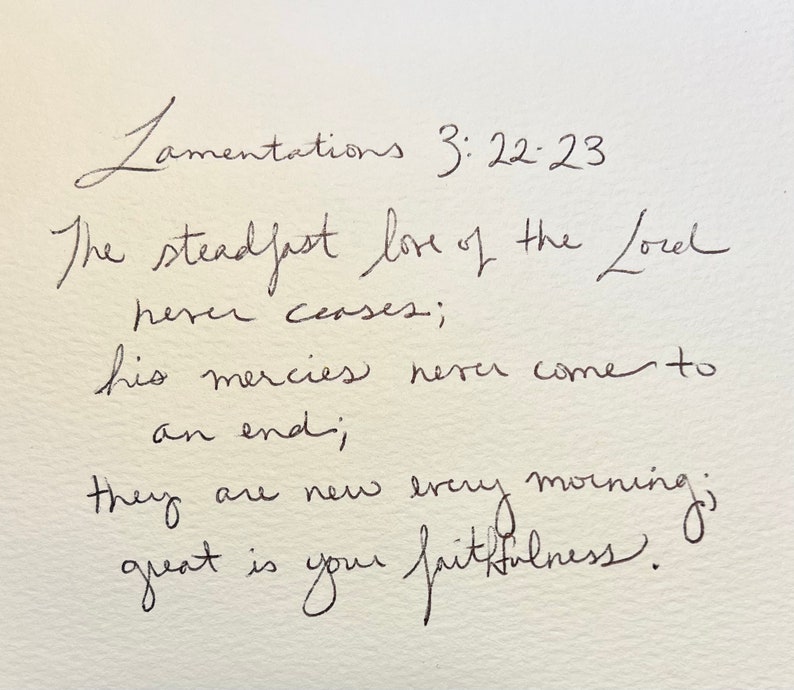 Lamentations 3:22-23
The steadfast love of the Lord
never ceases;
his mercies never come to
an end;
they are new every morning;
great is your faithfulness.